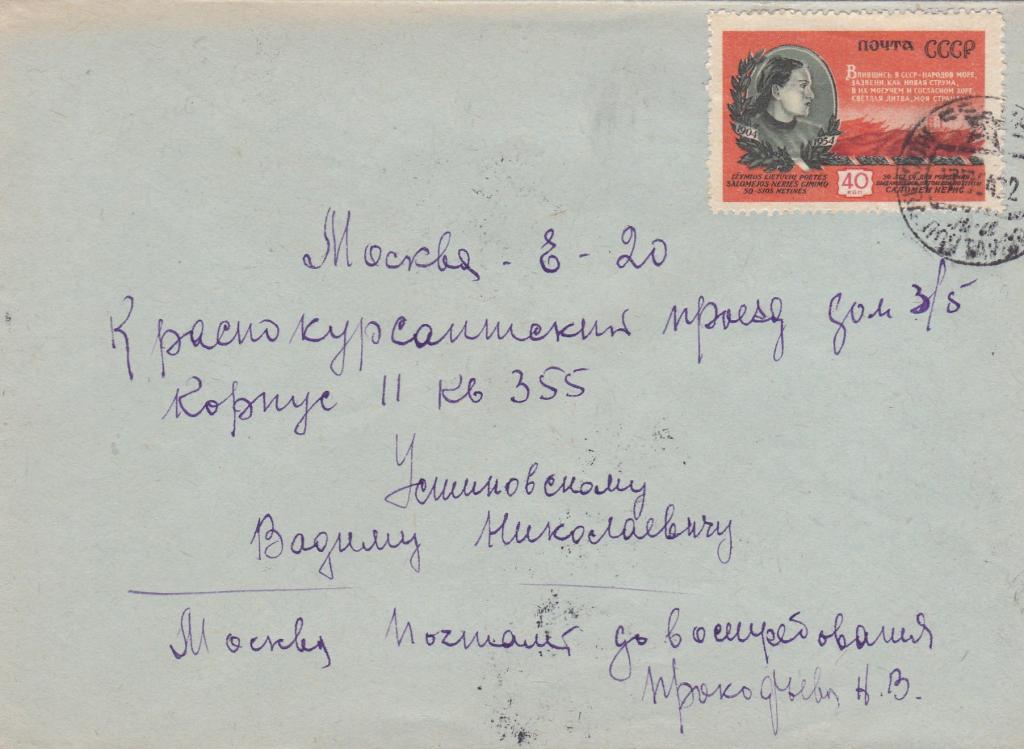 почта СССР
Влившись в СССР - народов море,
Зазвени, как новая струна,
В их могучем и согласном хоре,
Светлая Литва, моя страна
1904
1954
IŽYMIOS LIETUVIŲ POETĖS
SALOMĖJOS NĖRIES GIMIMO
50-SIOS METINĖS
40
коп
50 лет со дня рождения
выдающейся литовской поэтессы
САЛОМЕИ НЕРИС
Москва - Е - 20
Краснокурсантский проезд дом 3/5
Корпус 11 кв 355
Устиновскому
Вадиму Николаевичу
Москва Почтамт до востребования
Прокофьева Н.В.